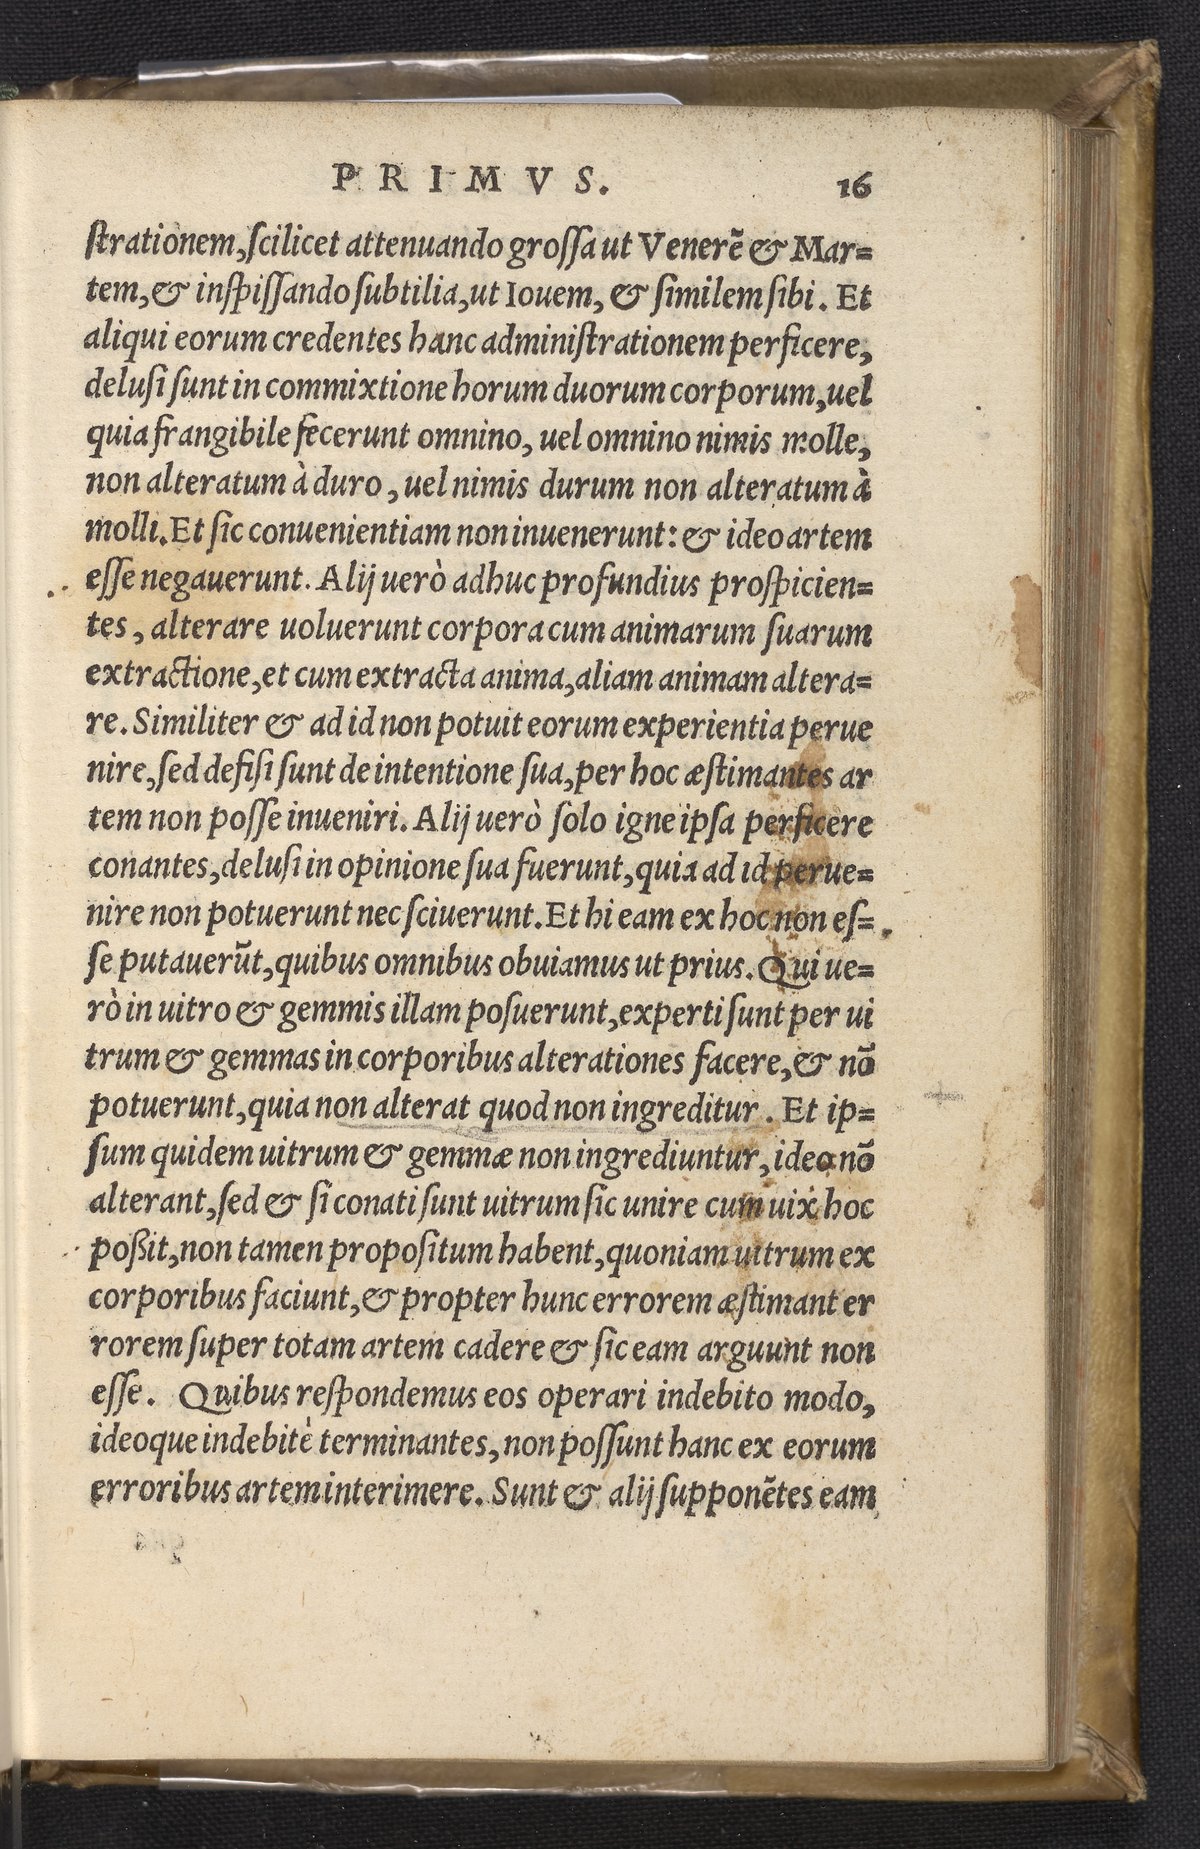 PRIMVS. 16
ſtrationem,ſcilicet attenuando groſſa ut Venerẽ & Mar=
tem,& inſpiſſando ſubtilia,ut Iouem, & ſimilem ſibi. Et
aliqui eorum credentes hanc adminiſtrationem perficere,
deluſi ſunt in commixtione horum duorum corporum,uel
quia frangibile fecerunt omnino, uel omnino nimis molle,
non alteratum à duro, uel nimis durum non alteratum à
molli. Et ſic conuenientiam non inuenerunt: & ideo artem
eſſe negauerunt. Alij uerò adhuc profundius proſpicien=
tes, alterare uoluerunt corpora cum animarum ſuarum
extractione,et cum extracta anima,aliam animam altera=
re. Similiter & ad id non potuit eorum experientia perue
nire,ſed defiſi ſunt de intentione ſua,per hoc æſtimantes ar
tem non poſſe inueniri. Alij uerò ſolo igne ipſa perficere
conantes,deluſi in opinione ſua fuerunt,quia ad id perue=
nire non potuerunt nec ſciuerunt. Et hi eam ex hoc non eſ=
ſe putauerũt,quibus omnibus obuiamus ut prius. Qui ue=
rò in uitro & gemmis illam poſuerunt,experti ſunt per ui
trum & gemmas in corporibus alterationes facere,& nõ
potuerunt,quia non alterat quod non ingreditur. Et ip=
ſum quidem uitrum & gemmæ non ingrediuntur, ideo nõ
alterant,ſed & ſi conati ſunt uitrum ſic unire cum uix hoc
poßit,non tamen propoſitum habent,quoniam uitrum ex
corporibus faciunt,& propter hunc errorem æſtimant er
rorem ſuper totam artem cadere & ſic eam arguunt non
eſſe. Quibus reſpondemus eos operari indebito modo,
ideoque indebitè terminantes, non poſſunt hanc ex eorum
erroribus artem interimere. Sunt & alij ſupponẽtes eam